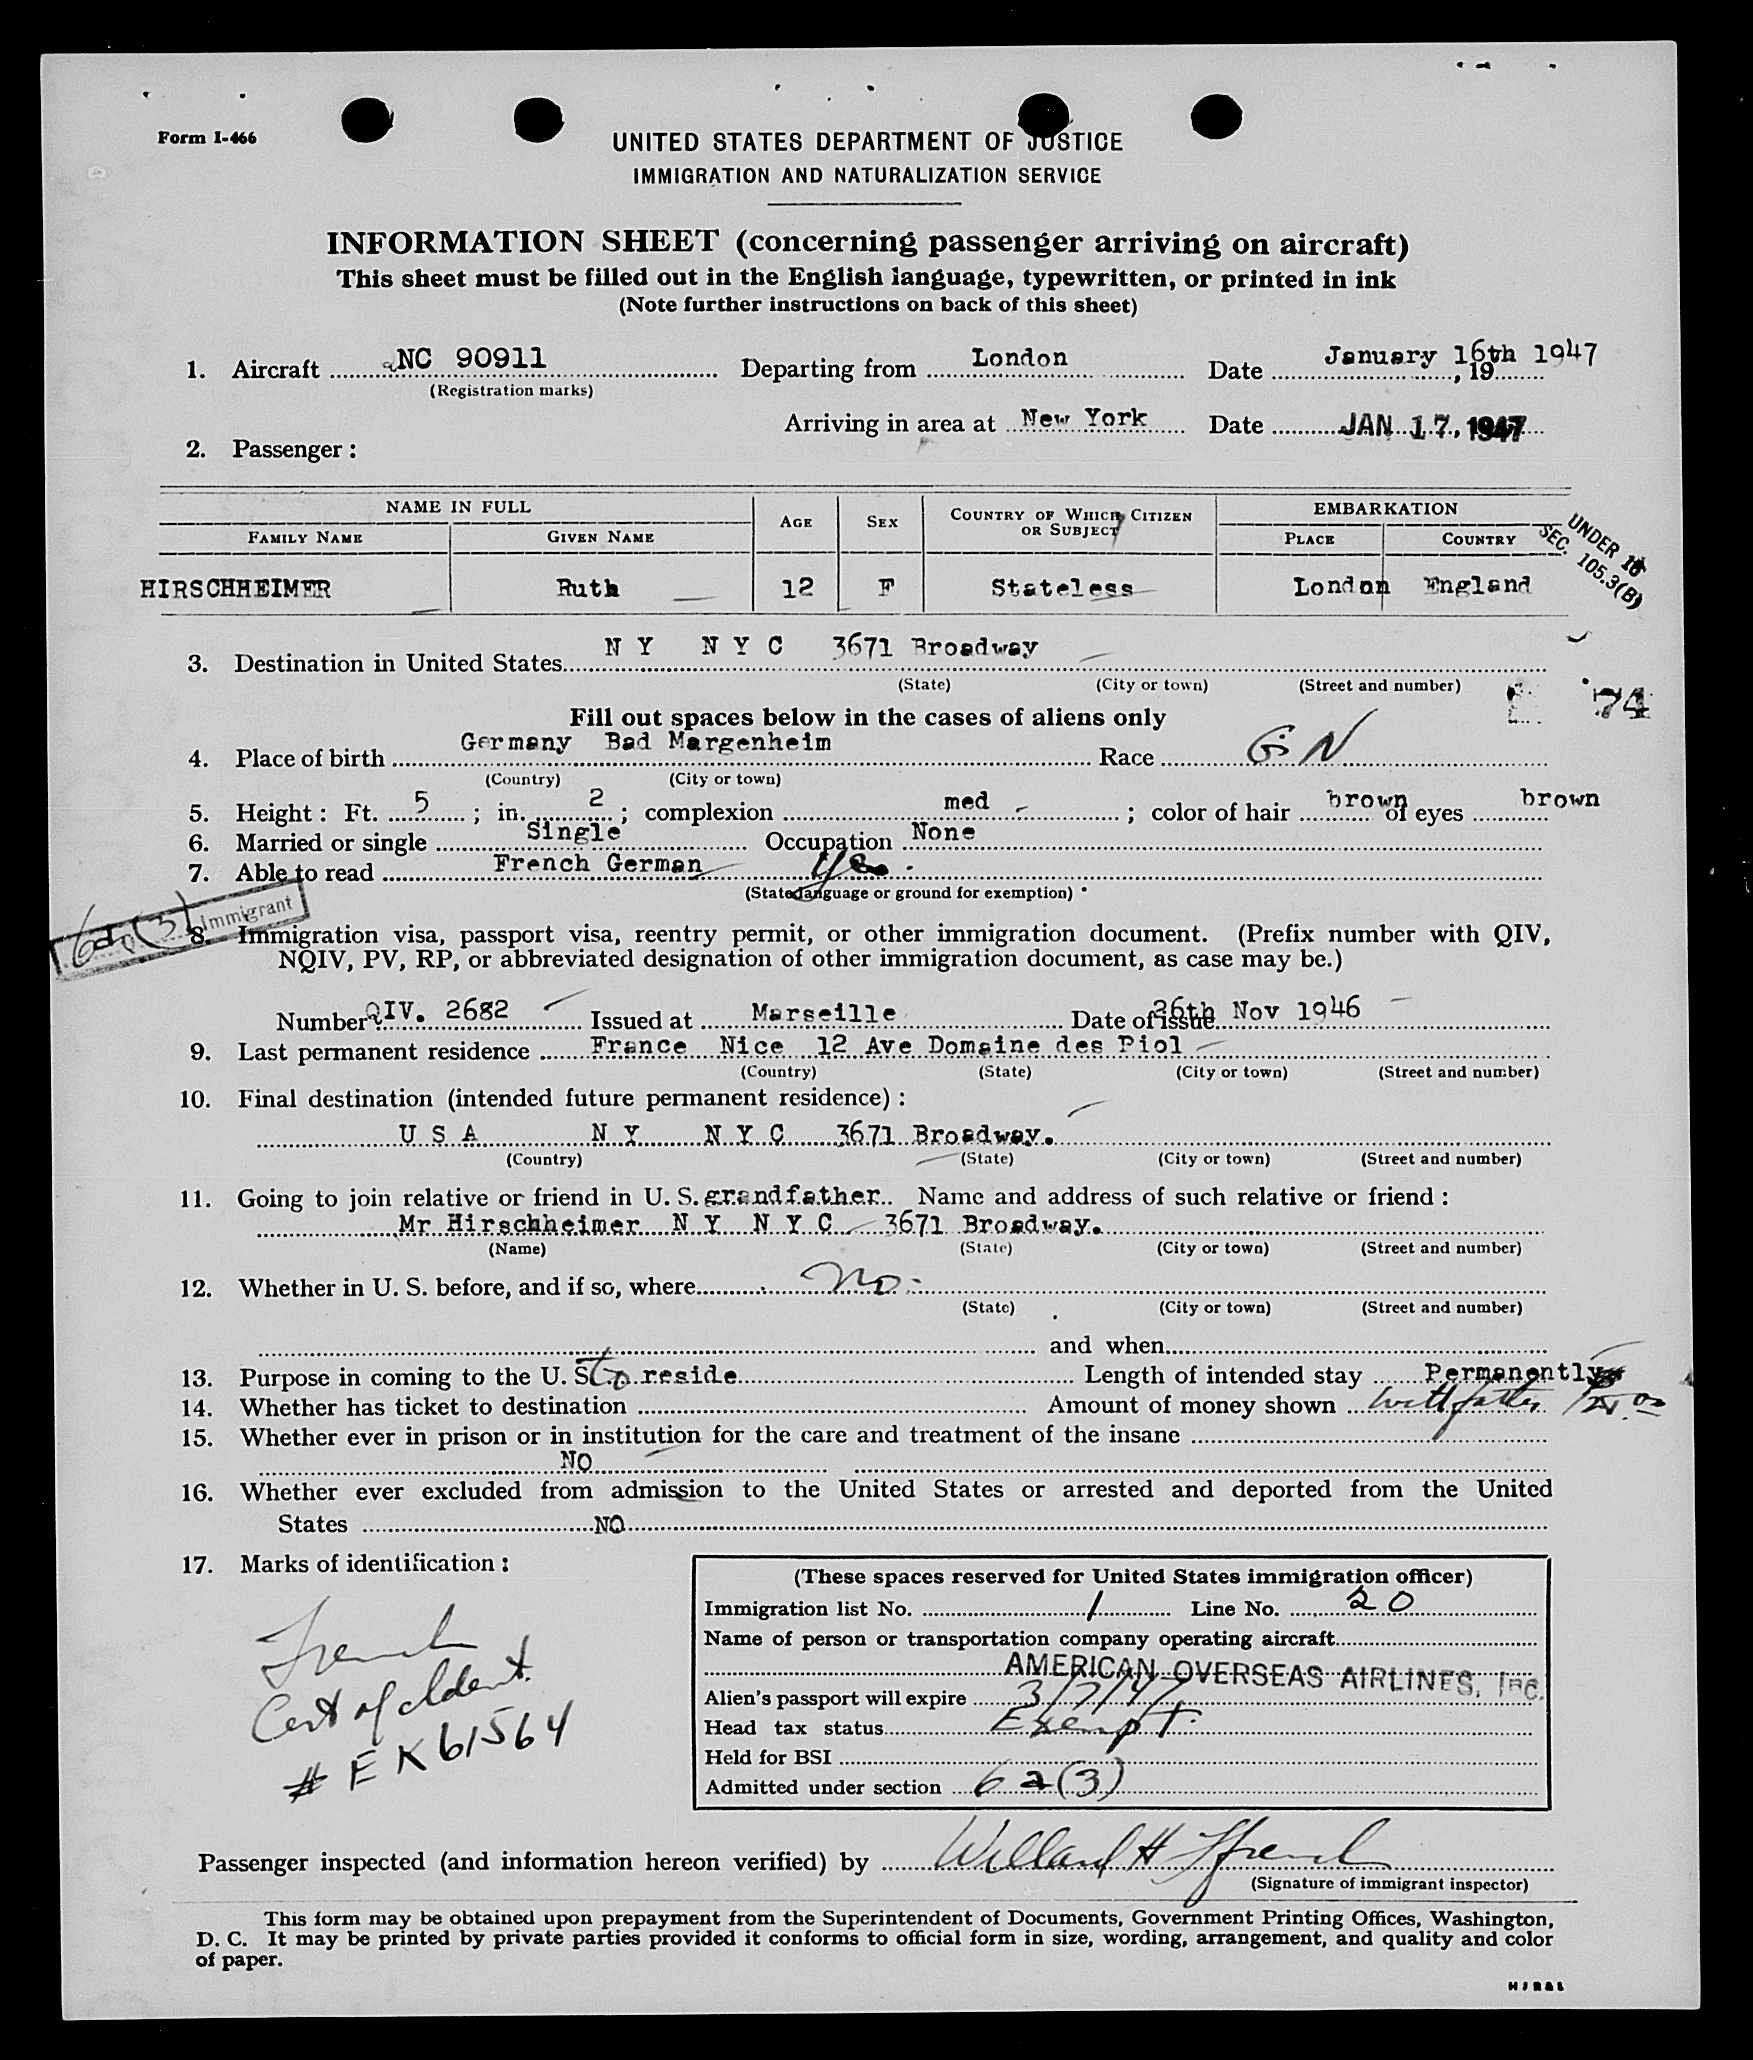 Form I-466
UNITED STATES DEPARTMENT OF JUSTICE
IMMIGRATION AND NATURALIZATION SERVICE
INFORMATION SHEET (concerning passenger arriving on aircraft)
This sheet must be filled out in the English language, typewritten, or printed in ink
(Note further instructions on back of this sheet)
1. Aircraft NC 90911 Departing from London Date January 16th 1947, 19
(Registration marks)
Arriving in area at New York Date JAN 17, 1947
2. Passenger:
NAME IN FULL AGE SEX COUNTRY OF WHICH CITIZEN OR SUBJECT EMBARKATION
FAMILY NAME GIVEN NAME PLACE COUNTRY
UNDER 16
SEC. 105.3(B)
HIRSCHHEIMER Ruth 12 F Stateless London England
3. Destination in United States N Y N Y C 3671 Broadway
(State) (City or town) (Street and number)
74
Fill out spaces below in the cases of aliens only
4. Place of birth Germany Bad Margenheim Race G N
(Country) (City or town)
5. Height: Ft. 5; in. 2; complexion med; color of hair brown of eyes brown
6. Married or single Single Occupation None
7. Able to read French German yes
(State language or ground for exemption)
6a(3) Immigrant
8. Immigration visa, passport visa, reentry permit, or other immigration document. (Prefix number with QIV,
NQIV, PV, RP, or abbreviated designation of other immigration document, as case may be.)
Number QIV. 2682 Issued at Marseille Date of issue 26th Nov 1946
9. Last permanent residence France Nice 12 Ave Domaine des Piol
(Country) (State) (City or town) (Street and number)
10. Final destination (intended future permanent residence):
U S A N Y N Y C 3671 Broadway.
(Country) (State) (City or town) (Street and number)
11. Going to join relative or friend in U. S. grandfather Name and address of such relative or friend:
Mr Hirschheimer N Y N Y C 3671 Broadway.
(Name) (State) (City or town) (Street and number)
12. Whether in U. S. before, and if so, where No.
(State) (City or town) (Street and number)
and when
13. Purpose in coming to the U. S. to reside Length of intended stay Permanently
14. Whether has ticket to destination Amount of money shown with father
15. Whether ever in prison or in institution for the care and treatment of the insane
NO
16. Whether ever excluded from admission to the United States or arrested and deported from the United
States NO
17. Marks of identification:
French
Cert of Ident.
# EK61564
(These spaces reserved for United States immigration officer)
Immigration list No. 1 Line No. 20
Name of person or transportation company operating aircraft
AMERICAN OVERSEAS AIRLINES, Inc.
Alien's passport will expire 3/7/47
Head tax status Exempt.
Held for BSI
Admitted under section 6a(3)
Passenger inspected (and information hereon verified) by Willard H Ffrench
(Signature of immigrant inspector)
This form may be obtained upon prepayment from the Superintendent of Documents, Government Printing Offices, Washington,
D. C. It may be printed by private parties provided it conforms to official form in size, wording, arrangement, and quality and color
of paper.